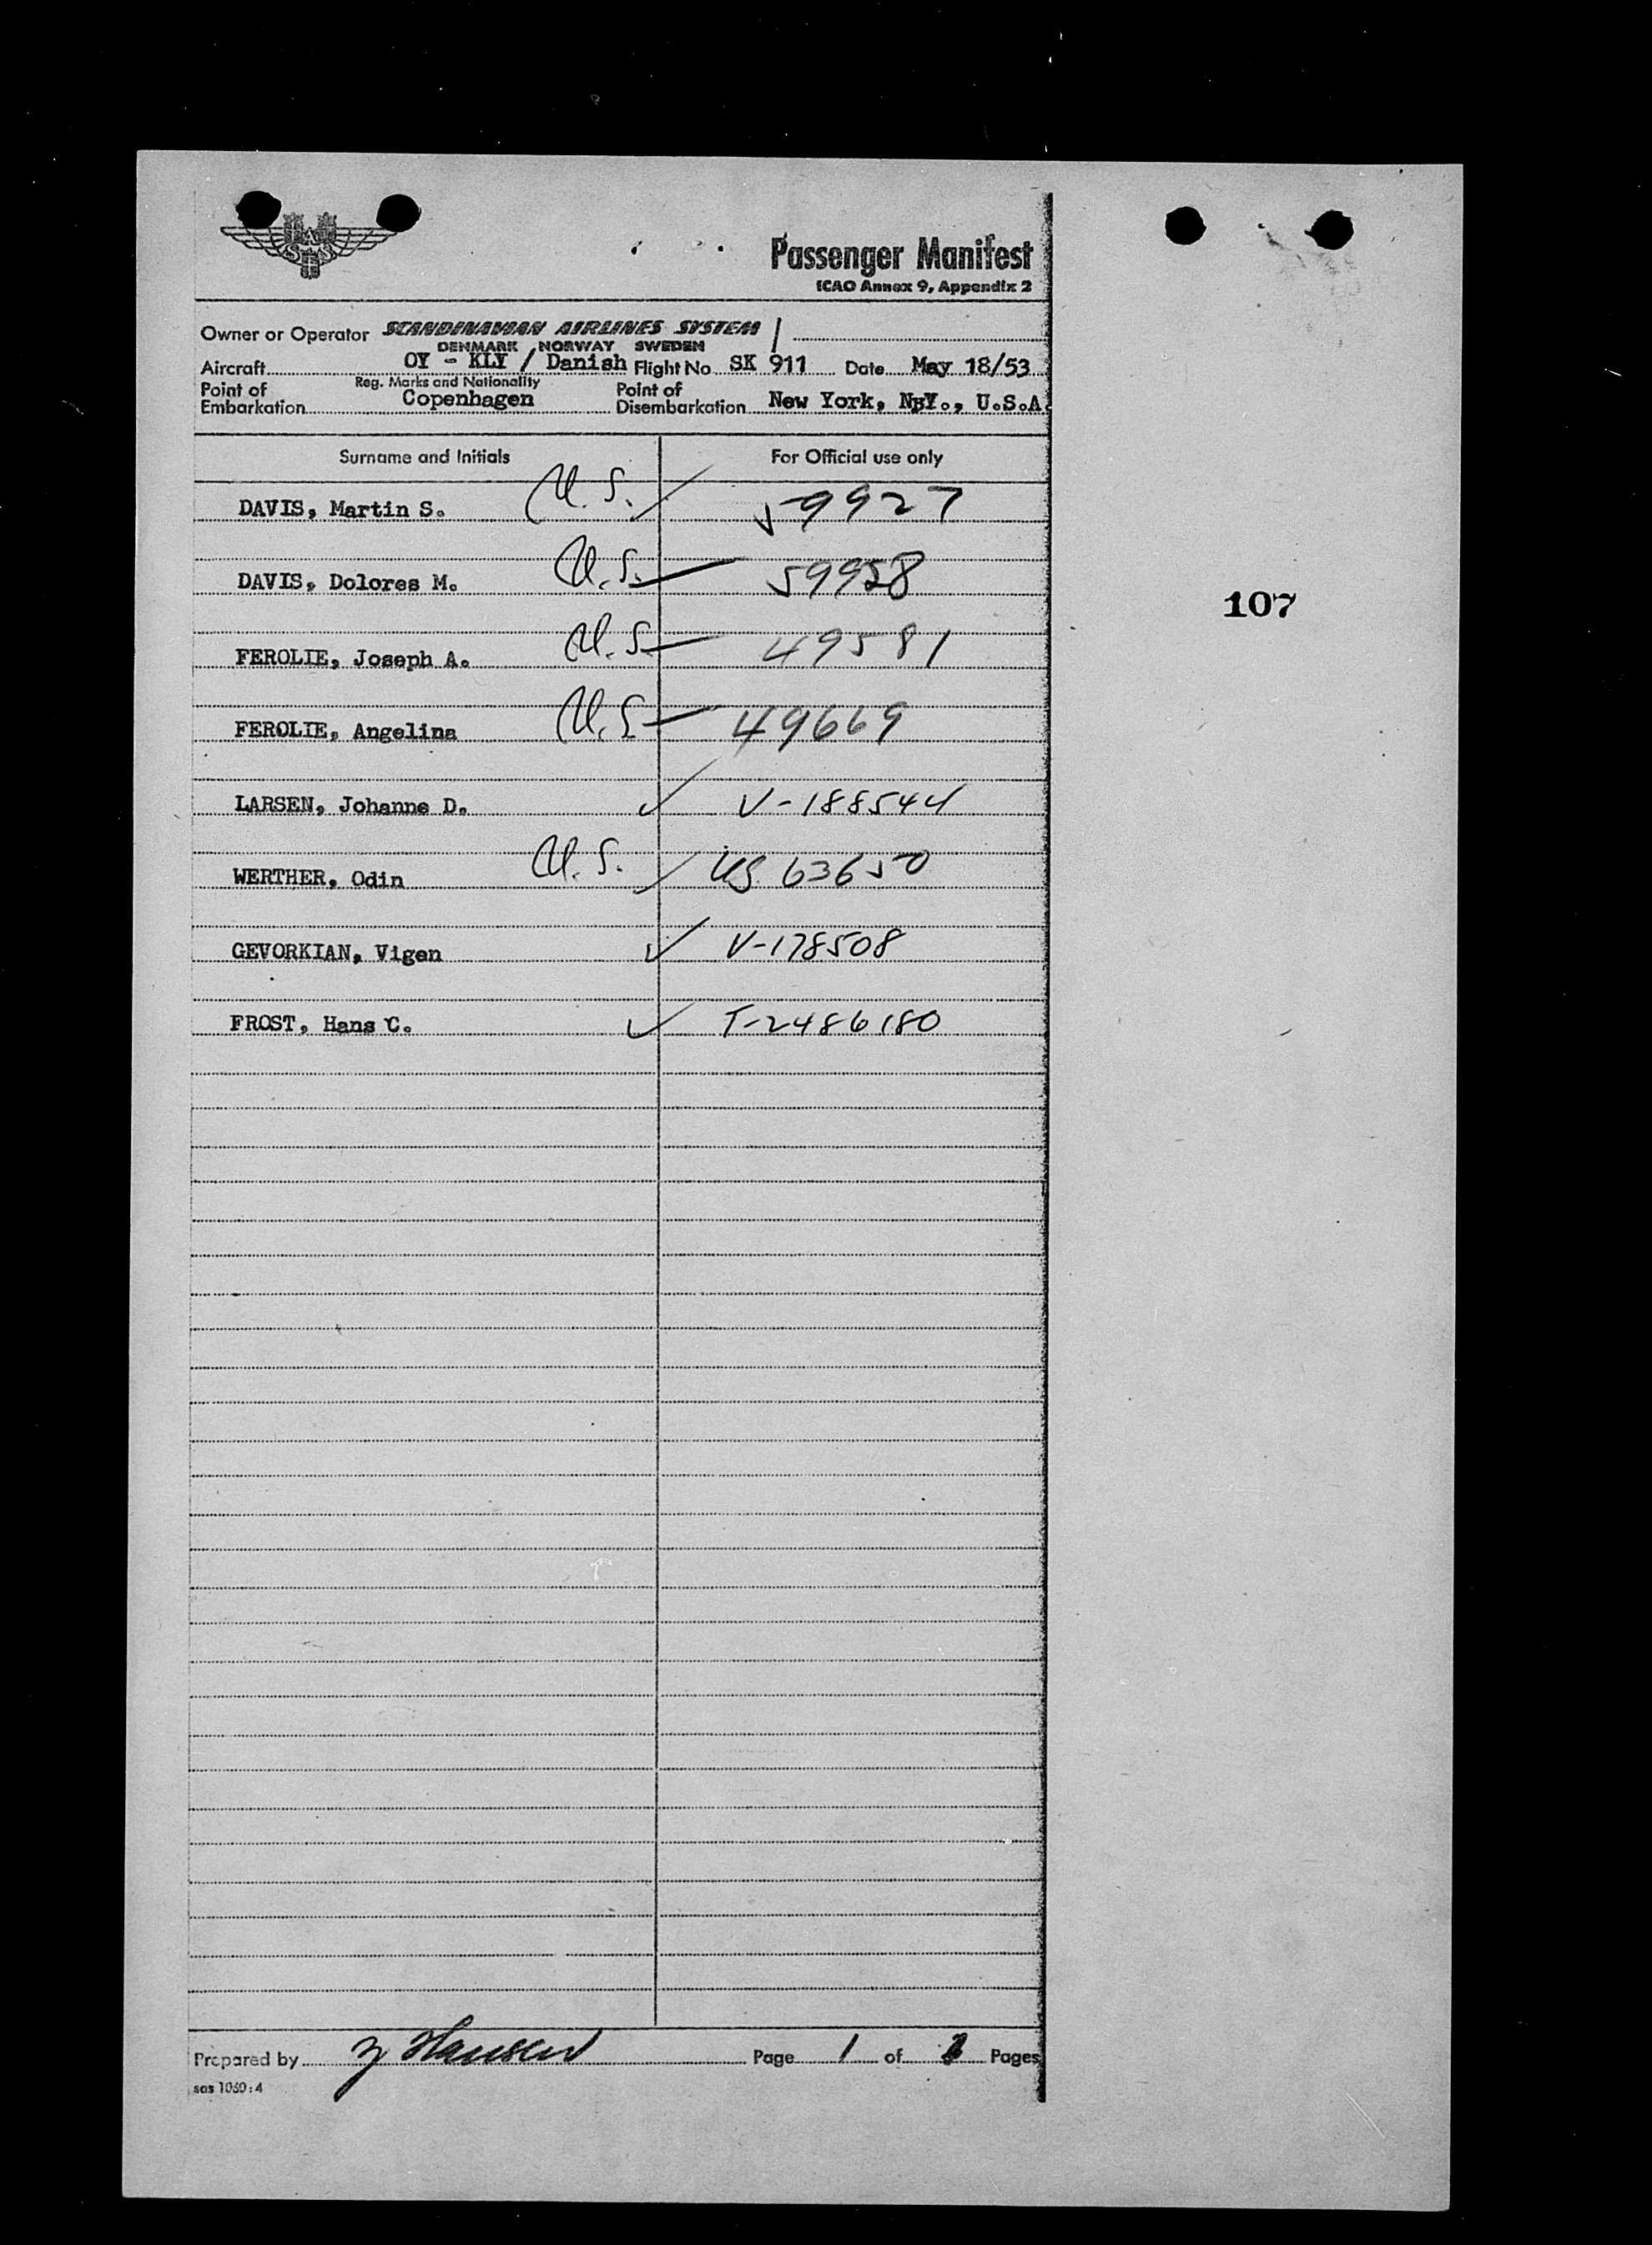 SAS
Passenger Manifest
ICAO Annex 9, Appendix 2
Owner or Operator SCANDINAVIAN AIRLINES SYSTEM
DENMARK NORWAY SWEDEN
Aircraft OY - KLY / Danish Flight No SK 911 Date May 18/53
Reg. Marks and Nationality
Point of Embarkation Copenhagen Point of Disembarkation New York, N.Y., U.S.A.
Surname and Initials For Official use only
DAVIS, Martin S. U.S. 59927
DAVIS, Dolores M. U.S. 59928
107
FEROLIE, Joseph A. U.S. 49581
FEROLIE, Angelina U.S. 49669
LARSEN, Johanne D. V-188544
WERTHER, Odin U.S. US 63650
GEVORKIAN, Vigen V-178508
FROST, Hans C. T-2486180
Prepared by Hansen Page 1 of Pages
sas 1060:4